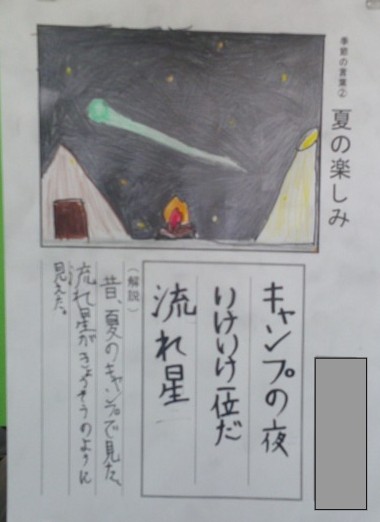 季節の言葉②
夏の楽しみ
キャンプの夜
いけいけ一位だ
流れ星
(解説)
昔、夏のキャンプで見た、
流れ星がきょうそうのように
見えた。